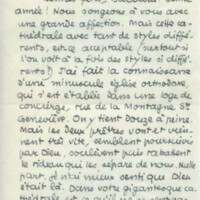 année ! Nous songeons à vous avec
une grande affection. Mais cette ca-
thédrale avec tant de styles diffé-
rents, est-ce acceptable (surtout si
l'on voit à la fois des styles si diffé-
rents) ? J'ai fait la connaissance
d'une minuscule église orthodoxe,
qui s'est établie dans une loge de
concierge, rue de la Montagne St
Geneviève. On y tient douze à peine.
Mais les deux prêtres vont et vien-
nent très vite, semblent poursuivis
par Dieu, soulèvent puis rabattent
le rideau qui les sépare de nous. Nulle
part, je n'ai mieux senti que Dieu
était là. Dans votre gigantesque ca-